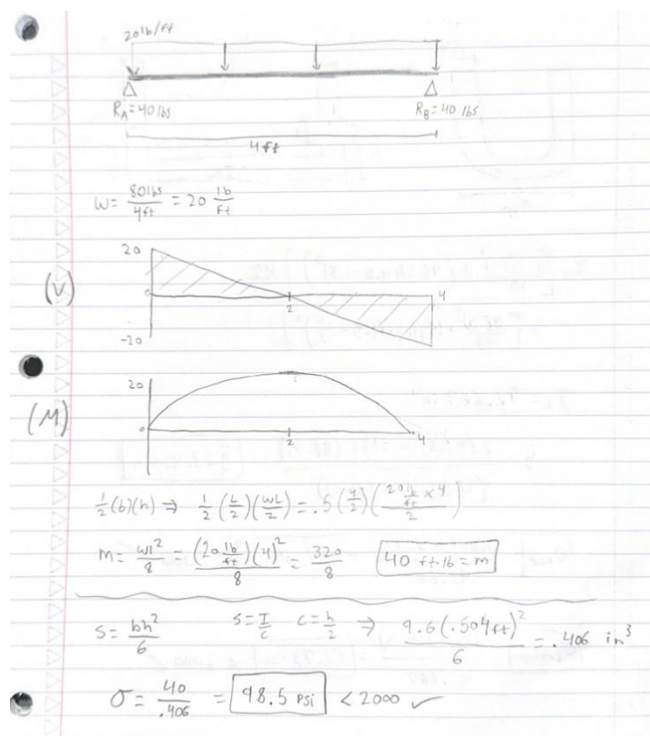 20 lb/ft
R_A = 40 lbs
R_B = 40 lbs
4 ft
W = 80 lbs / 4 ft = 20 lb/ft
(V)
20
0
2
4
-20
(M)
20
0
2
4
1/2 (b)(h) ⇒ 1/2 (L/2)(WL/2) = .5 (4/2)(20 lb/ft × 4 / 2)
m = wl²/8 = (20 lb/ft)(4)²/8 = 320/8 40 ft·lb = m
S = bh²/6 S = I/c c = h/2 ⇒ 9.6(.504 ft)²/6 = .406 in³
σ = 40/.406 = 98.5 psi < 2000 ✓